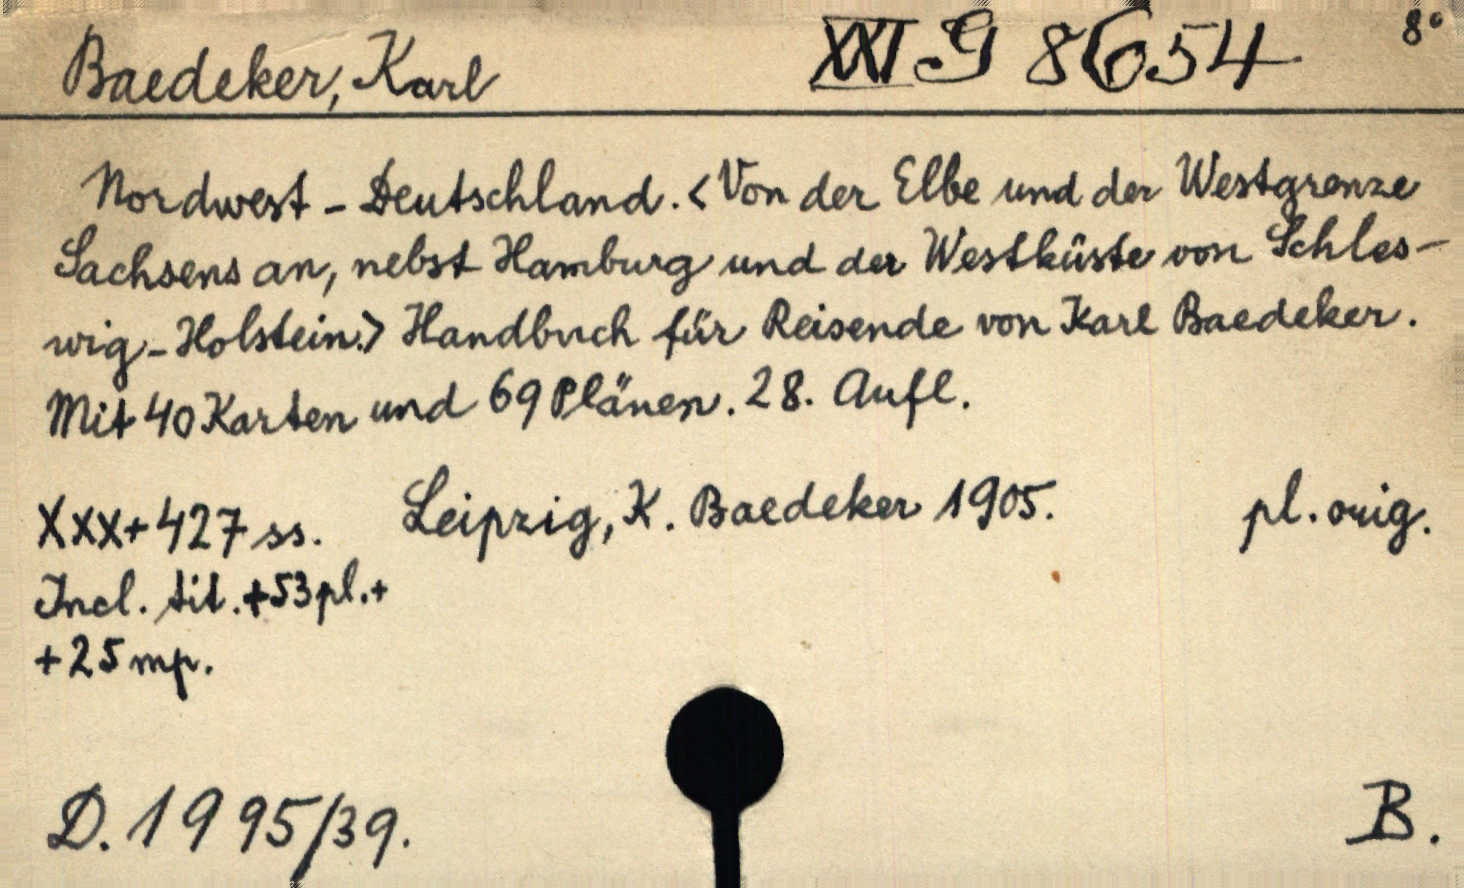 Baedeker, Karl XXI G 8654 8°
Nordwest-Deutschland. <Von der Elbe und der Westgrenze
Sachsens an, nebst Hamburg und der Westküste von Schles-
wig-Holstein.> Handbuch für Reisende von Karl Baedeker.
Mit 40 Karten und 69 Plänen. 28. Aufl.
XXX+427 ss. Leipzig, K. Baedeker 1905. pl. orig.
Incl. tit. +53 pl.+
+25 mp.
D. 1995/39. B.